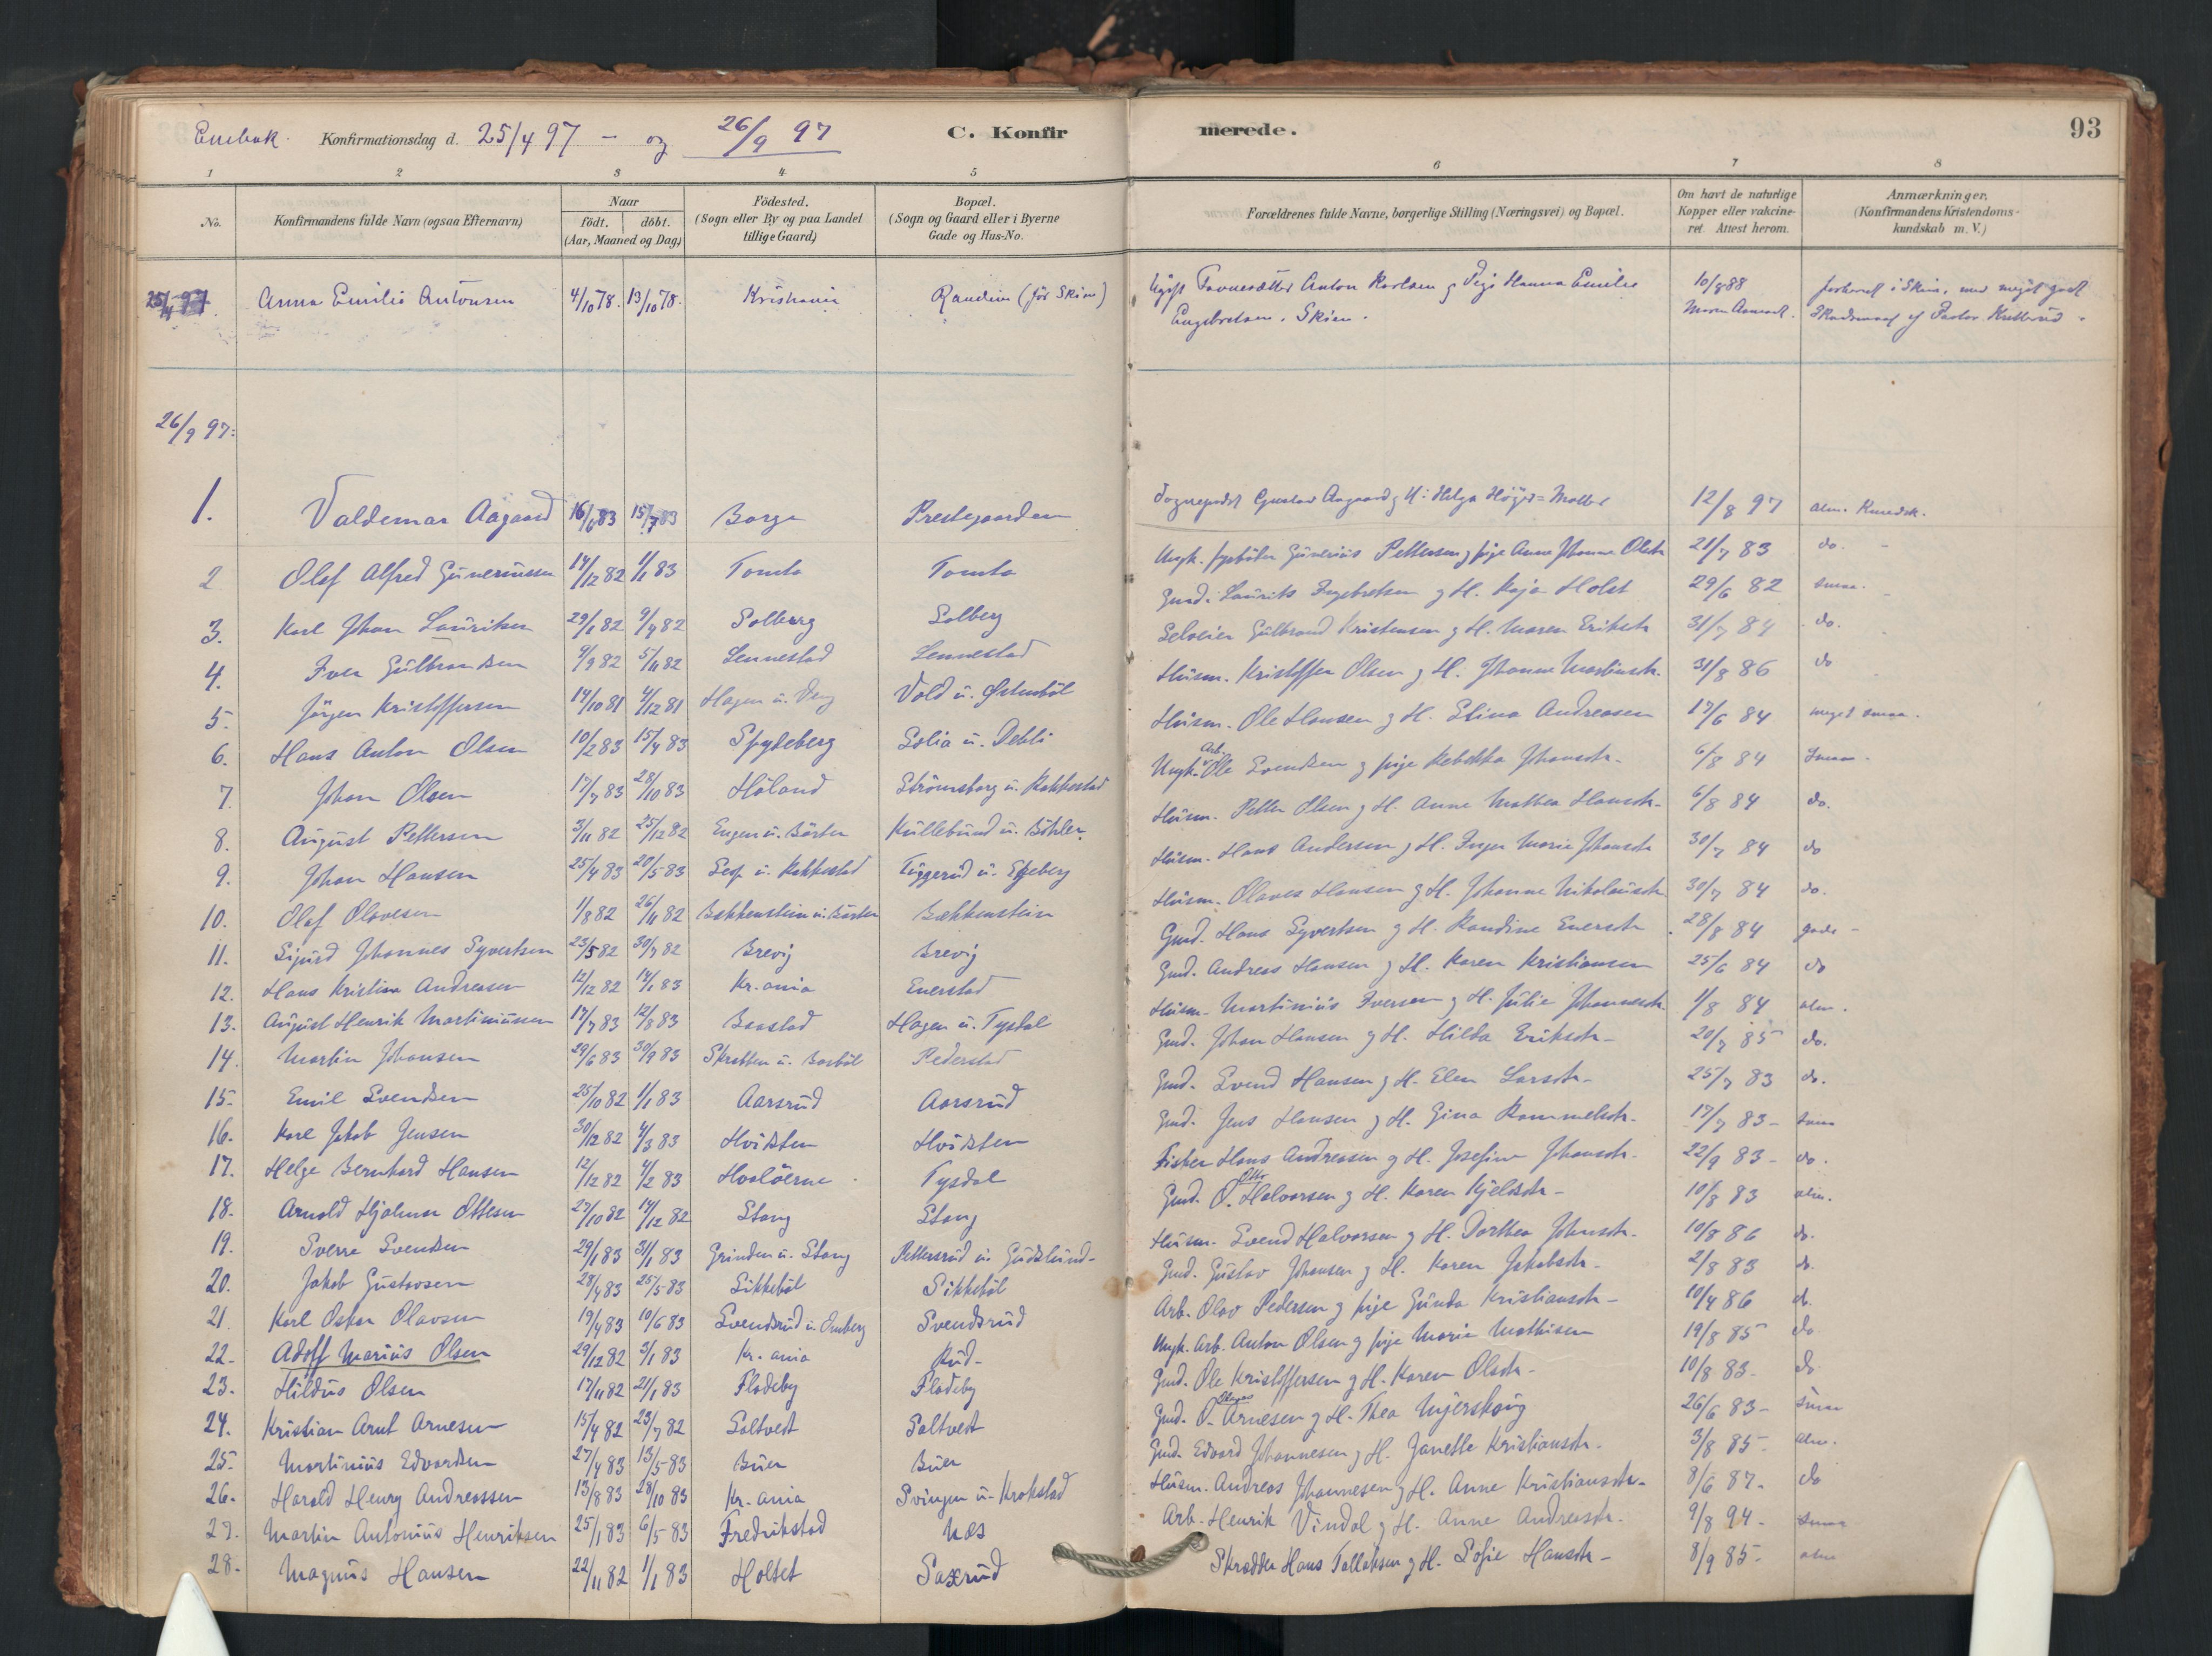 Enebak Konfirmationsdag d. 25/4 97 - og 26/9 97 C. Konfirmerede. 93
1 2 3 4 5 6 7 8
No. Konfirmandens fulde Navn (ogsaa Efternavn) Naar født. døbt. (Aar, Maaned og Dag) Fødested. (Sogn eller By og paa Landet tillige Gaard) Bopæl. (Sogn og Gaard eller i Byerne Gade og Hus-No. Forældrenes fulde Navne, borgerlige Stilling (Næringsvei) og Bopæl. Om havt de naturlige Kopper eller vakcineret. Attest herom. Anmærkninger. (Konfirmandens Kristendomskundskab m. V.)
25/4 97 Anna Emilie Antonsen 4/10 78. 13/10 78. Kristiania (før Skien) Anton Karlsen g Pige Hanna Emilie 10/8 88 forberedt i Skien, med meget godt
Engebretsen. Skien. af Pastor
26/9 97:
1. Valdemar Aagaard 16/6 83 15/7 83 Borge Prestegaarden Sognepræst Gustav Aagaard g H: Helga Höyer-Møller 12/8 97 alm. Kundsk.
2 Olaf Alfred Guneriussen 14/12 82 1/1 83 Tomta Tomta Ungk. fyrbøder Gunerius Pettersen g pige Anne Johanne Olsdtr 21/7 83 do.
3. Karl Johan Lauritsen 29/1 82 9/4 82 Solberg Solberg Gmd. Laurits Ingebretsen g H. Kaja Holst 29/6 82 smaa.
4. Iver Gulbrandsen 9/9 82 5/11 82 Lennestad Lennestad Selveier Gulbrand Kristensen g H. Maren Eriksdtr 31/7 84 do.
5. Jörgen Kristoffersen 14/10 81 4/12 81 Hagen u. Vold u. Østenböl Husm. Kristoffer Olsen g H. Johanne Martinsdtr. 31/8 86 do
6. Hans Anton Olsen 10/2 83 15/4 83 Spydeberg Solia u. Dehli Husm. Ole Hansen g H. Stina Andreasen 17/6 84 meget smaa.
7. Johan Olsen 17/7 83 28/10 83 Höland Strömsborg u. Rakkestad Ungk. Arb. Ole Svendsen g pige Rebekka Johansdtr. 6/8 84 Smaa.
8. August Pettersen 3/11 82 25/12 82 Engen u. Börter Kullebund u. Böhler. Husm. Petter Olsen g H. Anne Mathea Hansdtr. 6/8 84 do.
9. Johan Hansen 25/4 83 20/5 83 u. Rakkestad Tuggerud u. Ekeberg Husm. Hans Andersen g H. Inger Marie Johansdtr 30/7 84 do
10. Olaf Olavesen 1/8 82 26/11 82 Bækkenstein u. Börter Bækkenstein Husm. Olaves Hansen g H. Johanne Nikolaisdtr 30/7 84 do.
11. Sigurd Johannes Syvertsen 23/5 82 30/7 82 Brevig Brevig Gmd. Hans Syvertsen g H. Randine Enersdtr. 28/8 84 gode
12. Hans Kristian Andreasen 12/12 82 14/1 83 Kr.ania Enerstad Gmd. Andreas Hansen g H. Karen Kristiansen 25/6 84 do
13. August Henrik Martiniussen 17/7 83 12/8 83 Baastad Hagen u. Tysdal Husm. Martinius Iversen g H. Julie Johannesdtr 1/8 84 alm.
14. Martin Johansen 29/6 83 30/9 83 Skratten u. Borböl Pederstad Gmd. Johan Hansen g H. Hilda Eriksdtr 20/7 85 do.
15. Emil Svendsen 25/10 82 1/1 83 Aarsrud Aarsrud Gmd. Svend Hansen g H. Elen Larsdtr. 25/7 83 do.
16. Karl Jakob Jensen 30/12 82 4/3 83 Hvidsten Hvidsten Gmd. Jens Hansen g H. Gina Rommelsdtr. 17/7 83 smaa
17. Helge Bernhard Hansen 12/12 82 4/2 83 Hvaløerne Tysdal Fisker Hans Andreasen g H. Josefine Johansdtr. 22/9 83 do.
18. Arnold Hjalmar Ottesen 27/10 82 14/12 82 Stang Stang Gmd. O. Otto Halvorsen g H. Karen Kjelsdtr 10/8 83 alm.
19. Sverre Svendsen 29/1 83 31/1 83 Grinden u. Stang Pettersrud u. Gudslund Husm. Svend Halvorsen g H. Dorthea Johansdtr. 10/8 86 do.
20. Jakob Gustavsen 28/4 83 25/5 83 Sikkeböl Sikkeböl Gmd. Gustav Johansen g H. Karen Jakobsdtr. 2/8 83 do.
21. Karl Oskar Olavsen 19/4 83 10/6 83 Svendsrud u. Omberg Svendsrud Arb. Olav Pedersen g pige Gunda Kristiansdtr 10/4 86 do.
22. Adolf Marius Olsen 29/12 82 3/1 83 Kr.ania Rud Ungk. Arb. Anton Olsen g pige Marie Mathisen 19/8 85 do
23. Hildus Olsen 17/11 82 21/1 83 Flateby Flateby Gmd. Ole Kristoffersen g H. Karen Olsdtr. 10/8 83. do
24. Kristian Arnt Arnesen 15/4 82 23/7 82 Saltvedt Saltvedt Gmd. O. Arnesen g H. Thea Mjerskaug 26/6 83 smaa
25. Martinius Edvardsen 27/4 83 13/5 83 Buer Buer Gmd. Edvard Johannesen g H. Janette Kristiansdtr. 3/8 85 alm.
26. Harald Henry Andreassen 13/8 83 28/10 83 Kr.ania Svingen u. Krokstad Husm. Andreas Johannesen g H. Anne Kristiansdtr. 8/6 87. do
27. Martin Antonius Henriksen 25/1 83 6/5 83 Fredrikstad Næs Arb. Henrik Vindal g H. Anne Andreasdtr. 9/8 94 smaa
28. Magnus Hansen 22/11 82 1/1 83 Holtet Saxrud Skrædder Hans Tallaksen g H. Sofie Hansdtr 8/9 85. alm